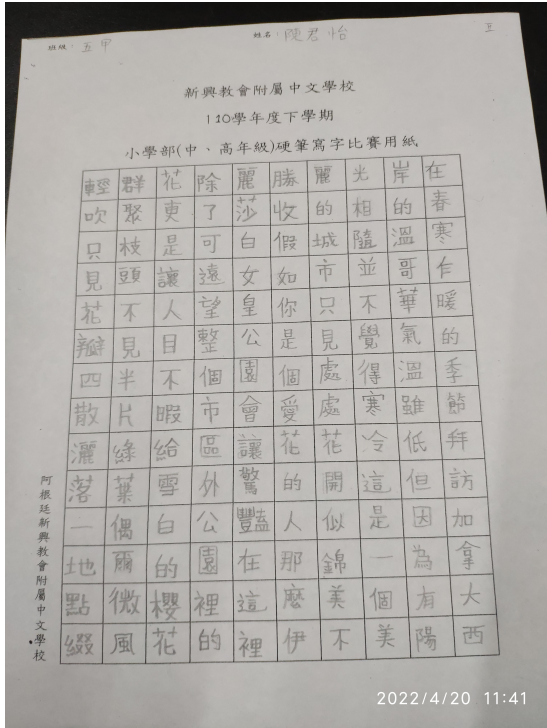 班級：五甲
姓名：陳君怡
新興教會附屬中文學校
110學年度下學期
小學部(中、高年級)硬筆寫字比賽用紙
在春寒乍暖的季節拜訪加拿大西
岸的溫哥華氣溫雖低但因為有陽
光相隨並不覺得寒冷這是一個美
麗的城市只見處處花開似錦美不
勝收假如你是個愛花的人那麼伊
麗莎白女皇公園會讓驚豔在這裡
除了可遠望整個市區外公園裡的
花更是讓人目不暇給雪白的櫻花
群聚枝頭不見半片綠葉偶爾微風
輕吹只見花瓣四散灑落一地點綴
阿根廷新興教會附屬中文學校
2022/4/20 11:41